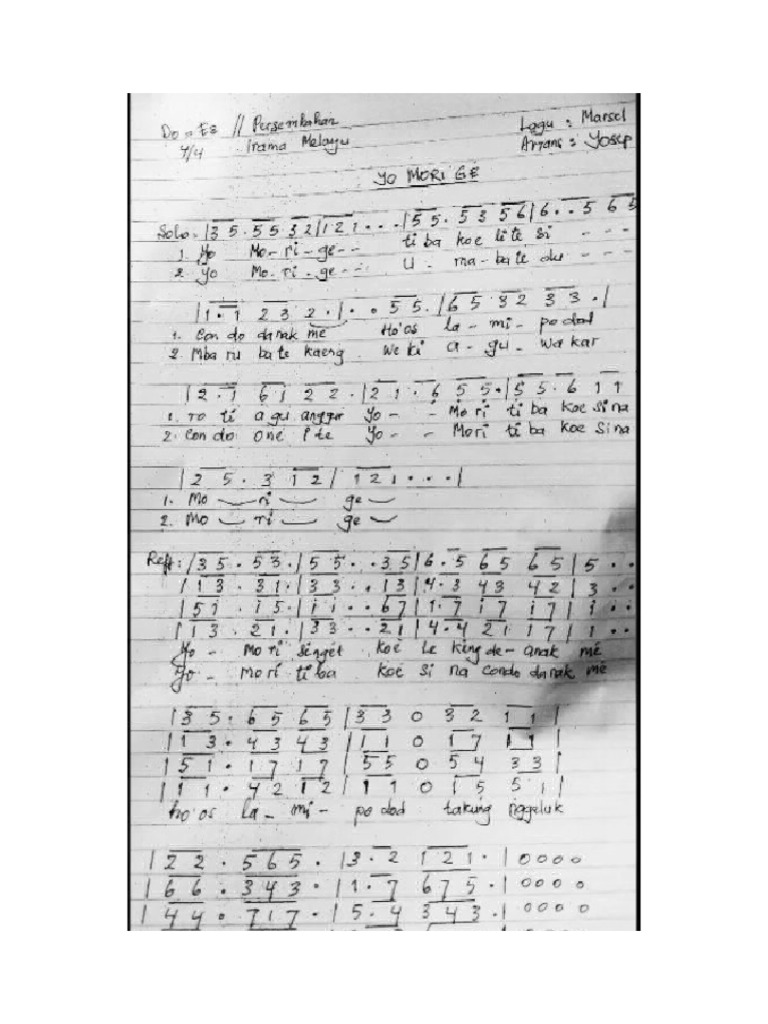 Do = Es // Persembahan
4/4 Irama Melayu
Lagu : Marsel
Arrans : Yosep
YO MORI GE
Solo : | 3 5 . 5 5 3 2 | 1 2 1 . . . | 5 5 . 5 3 5 6 | 6 . . 5 6 5
1. Yo Mo - ri - ge - - ti ba koe lite si - - -
2. Yo Mo - ri - ge - - U - ma - bate du - - -
| 1 . 1 2 3 2 . | . . 5 5 . | 6 5 3 2 3 3 . |
1. Con do danak me Ho'os la - mi - po dod
2. Mba ru ba te kaeng We ki a - gu - wa kar
| 2 . 1 6 1 2 2 . | 2 1 . 6 5 5 . | 5 5 . 6 1 1
1. ro ti a gu anggur Yo - - Mo ri ti ba koe si na
2. Con do one Pte Yo - - Mori ti ba koe si na
| 2 5 . 3 1 2 | 1 2 1 . . . |
1. Mo ri ge
2. Mo ri ge
Reff : | 3 5 . 5 3 . | 5 5 . . 3 5 | 6 . 5 6 5 6 5 | 5 . .
| 1 3 . 3 1 . | 3 3 . . 1 3 | 4 . 3 4 3 4 2 | 3 . .
| 5 1 . 1 5 . | 1 1 . . 6 7 | 1 . 7 1 7 1 7 | 1 . .
| 1 3 . 2 1 . | 3 3 . . 2 1 | 4 . 4 2 1 1 7 | 1 . .
Yo - Mo ri sénget koé Le king de - anak mé
Yo - Mori ti ba koé si na condo danak mé
| 3 5 . 6 5 6 5 | 3 3 0 3 2 1 1 |
| 1 3 . 4 3 4 3 | 1 1 0 1 7 1 1 |
| 5 1 . 1 7 1 7 | 5 5 0 5 4 3 3 |
| 1 1 . 4 2 1 2 | 1 1 0 1 5 5 1 |
Ho'os la - mi - po dod takung nggeluk
| 2 2 . 5 6 5 . | 3 . 2 1 2 1 . | 0 0 0 0
| 6 6 . 3 4 3 . | 1 . 7 6 7 5 . | 0 0 0 0
| 4 4 . 7 1 7 . | 5 . 4 3 4 3 . | 0 0 0 0